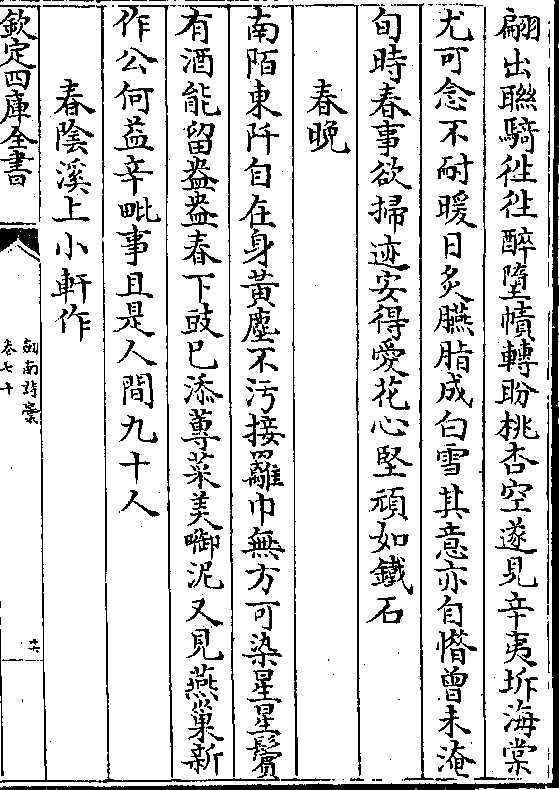 翩出聯騎徃徃醉墮幘轉盼桃杏空遂見辛夷坼海棠
尤可念不耐暖日炙臙脂成白雪其意亦自惜曾未淹
旬時春事欲掃迹安得愛花心堅頑如鐵石
春晚
南陌東阡自在身黃塵不污接䍦巾無方可染星星鬢
有酒能留盎盎春下豉已添蓴菜美啣泥又見燕巢新
作公何益辛毗事且是人間九十人
春陰溪上小軒作
欽定四庫全書
劍南詩槀
卷七十